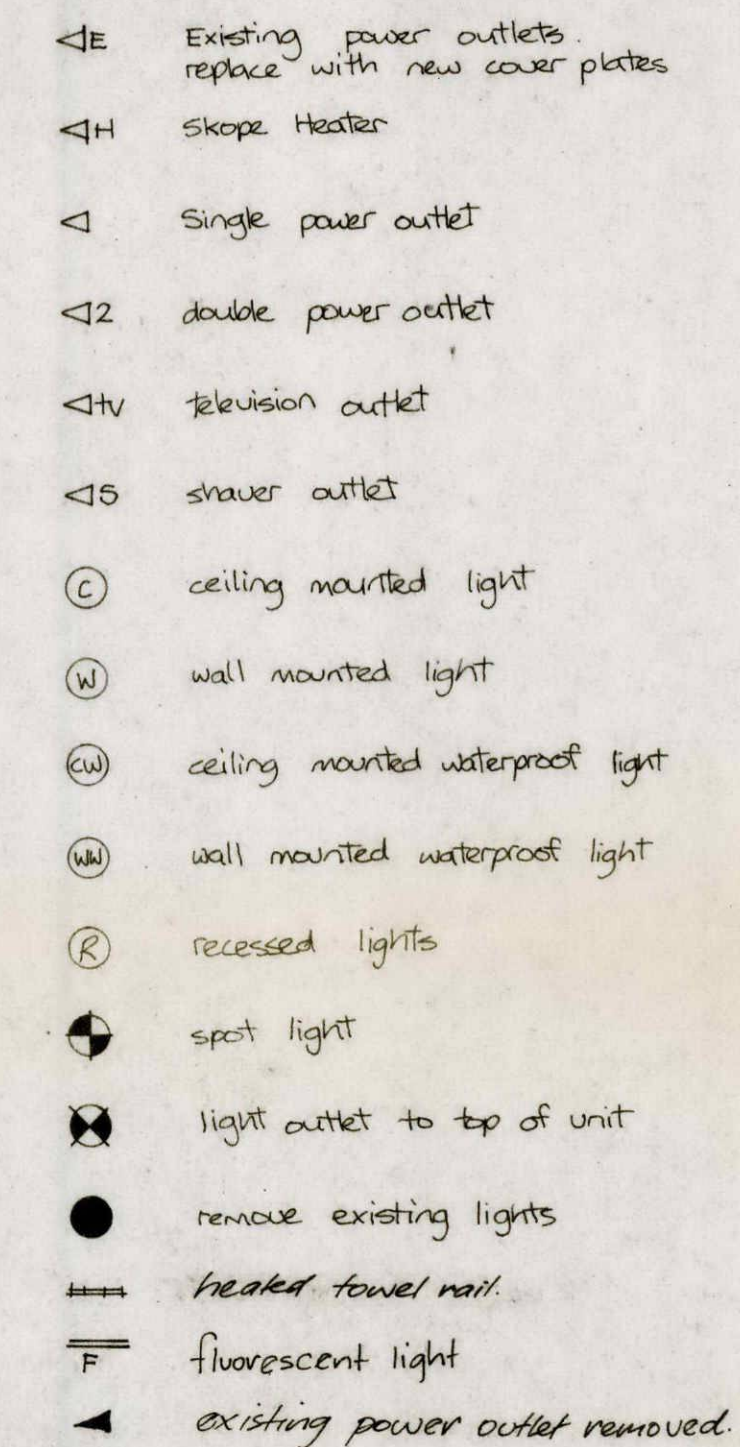 E Existing power outlets.
replace with new cover plates
H Skope Heater
Single power outlet
2 double power outlet
tv television outlet
S shaver outlet
C ceiling mounted light
W wall mounted light
CW ceiling mounted waterproof light
WW wall mounted waterproof light
R recessed lights
spot light
light outlet to top of unit
remove existing lights
heated towel rail.
F fluorescent light
existing power outlet removed.